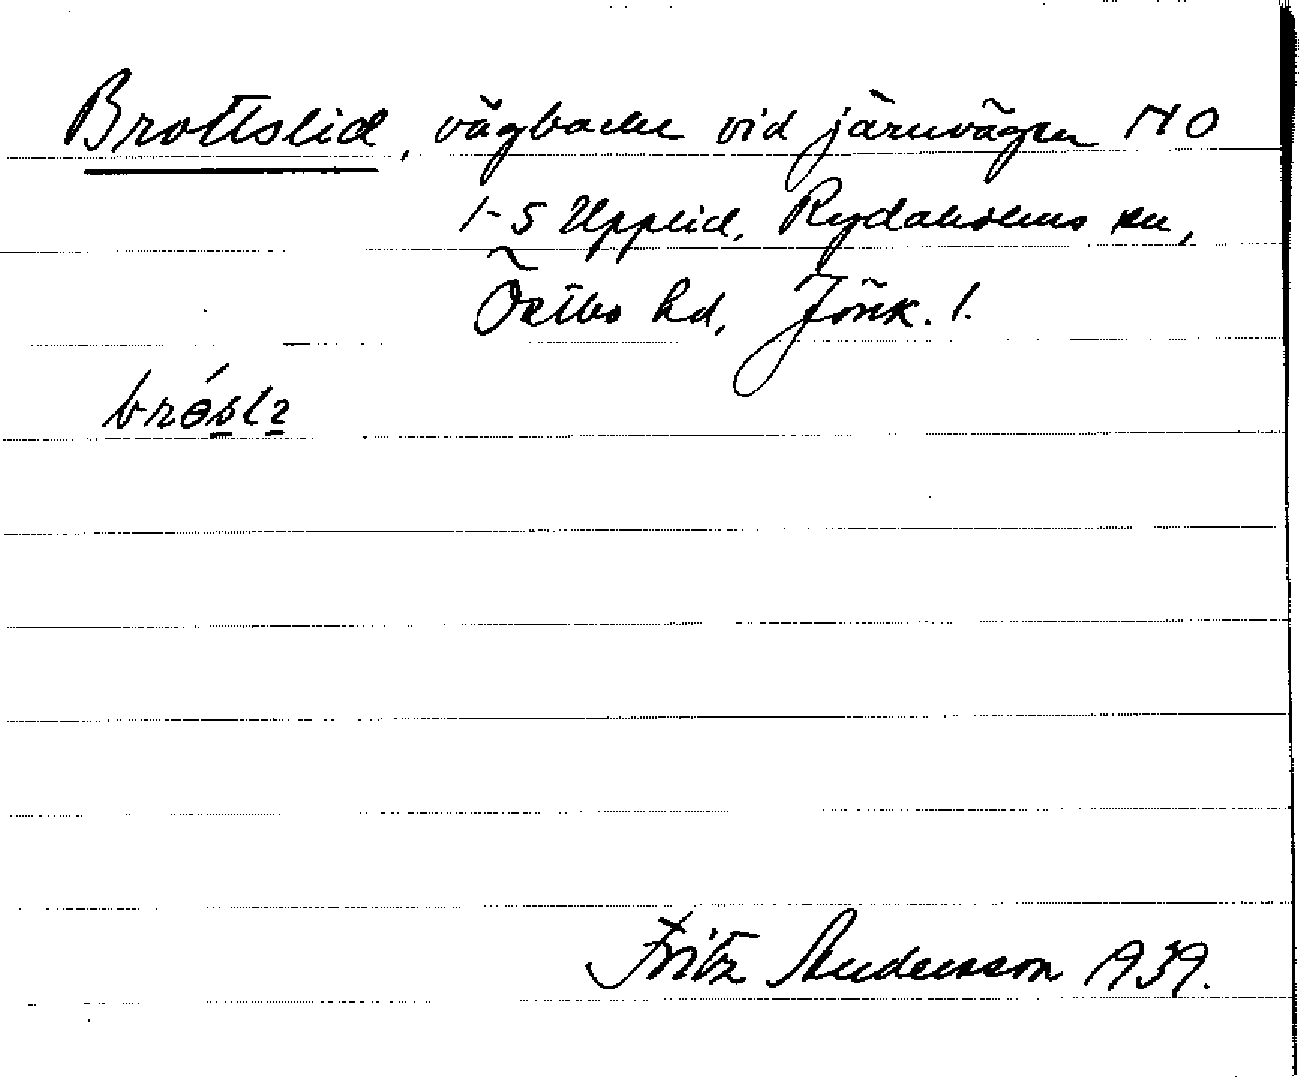 Brottslid, vägbacke vid järnvägen NO
1-5 Upplid, Rydaholms sn,
Östbo hd, Jönk. l.
Fritz Andersson 1939.